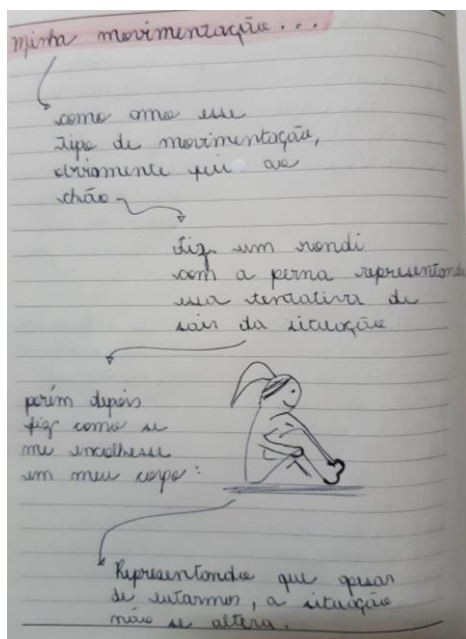 Minha movimentação...
como amo esse
tipo de movimentação,
obviamente fui ao
chão
Fiz um rondi
com a perna representando
essa tentativa de
sair da situação
porém depois
fiz como se
me encolhesse
em meu corpo:
Representando que apesar
de lutarmos, a situação
não se altera.